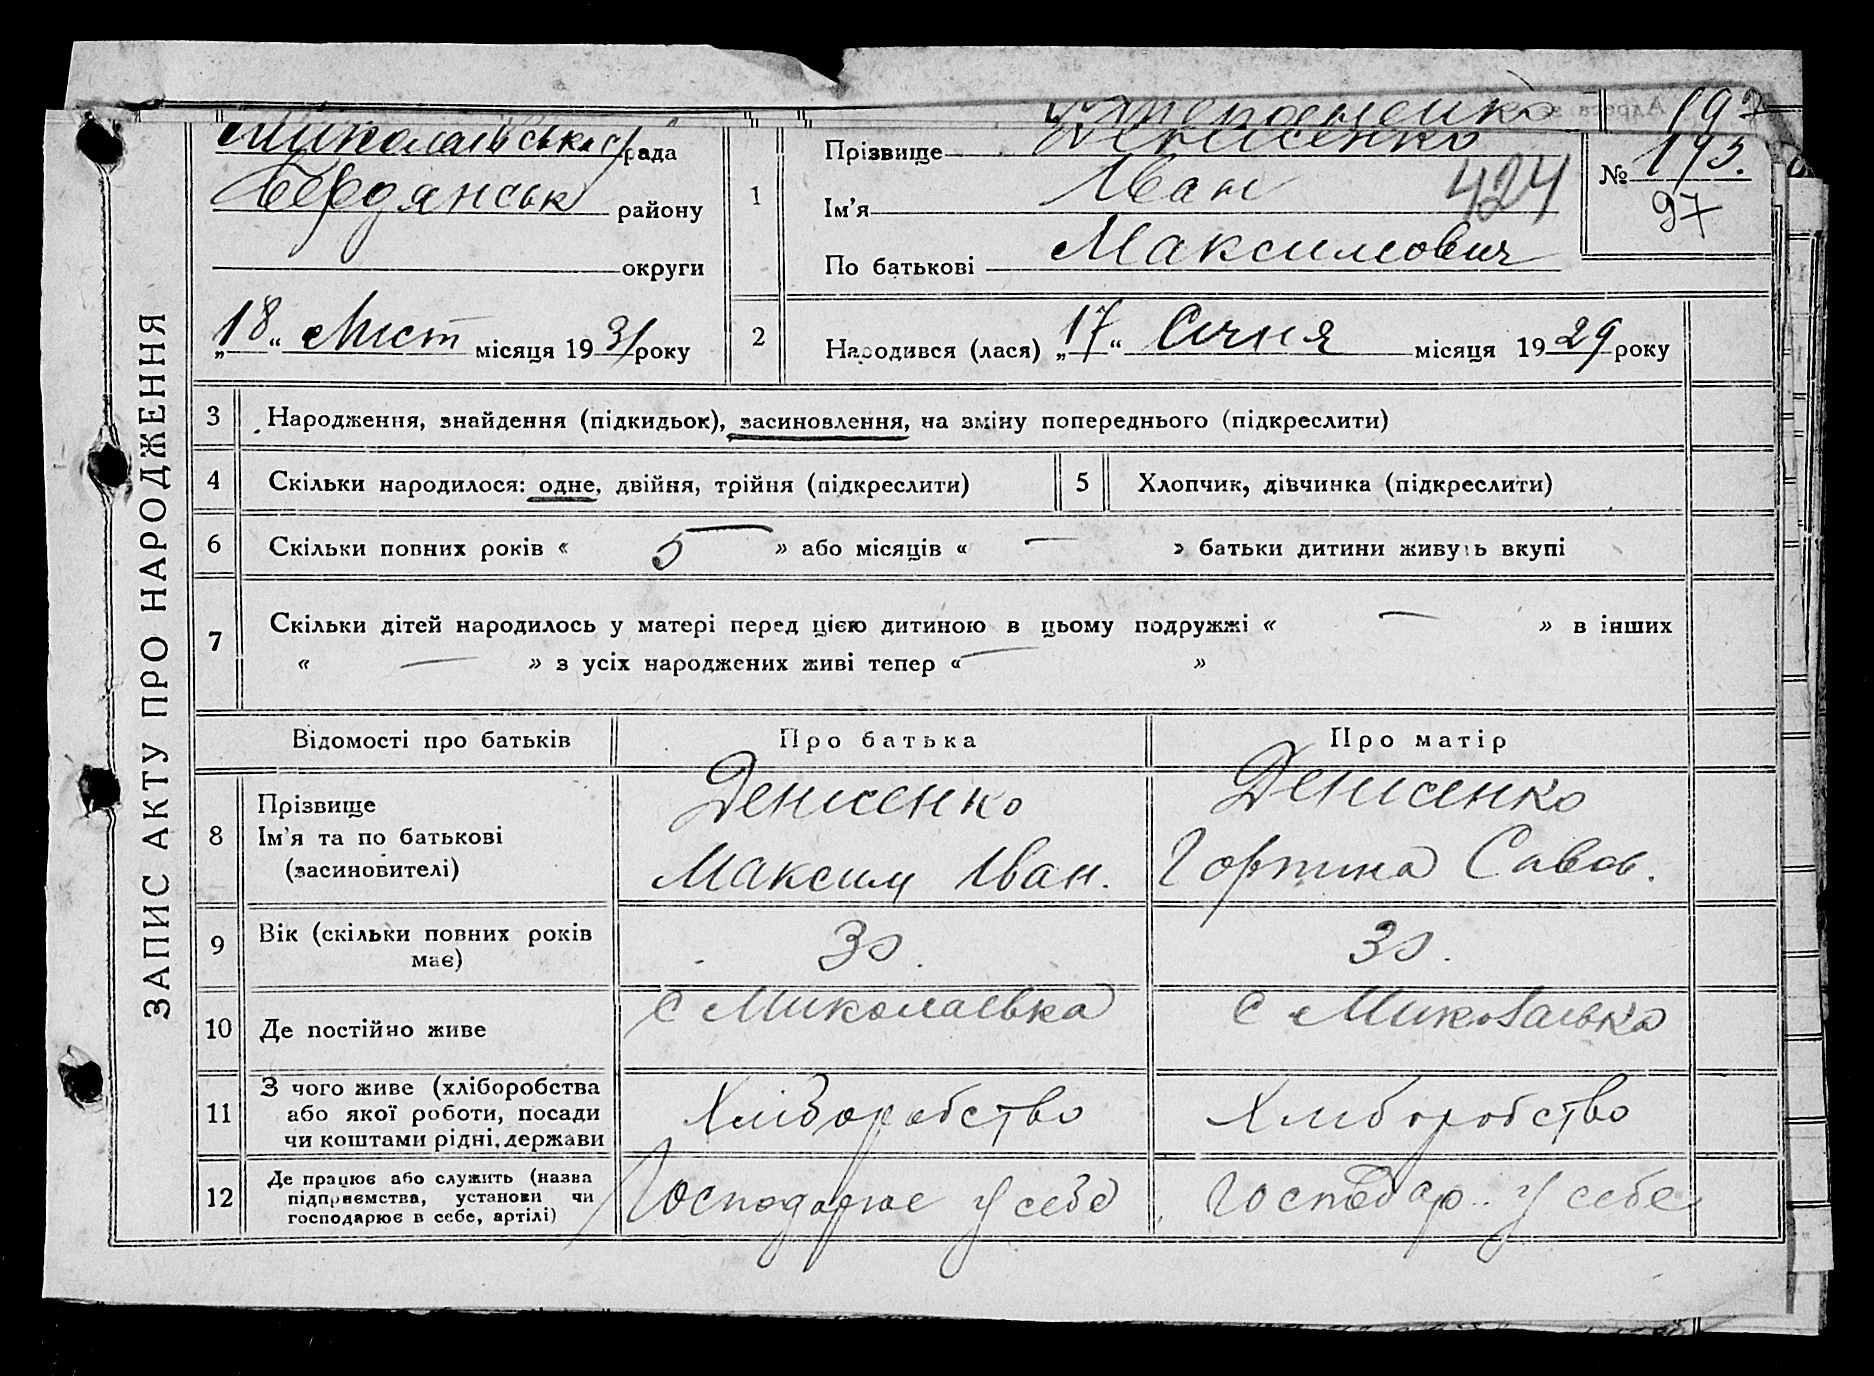 ЗАПИС АКТУ ПРО НАРОДЖЕННЯ
Миколаївська с/рада
Бердянськ району
округи
„18“ Лист місяця 1931 року
1
Прізвище Денисенко
Ім’я Іван 424
По батькові Максимович
197
№ 193.
97
2 Народився (лася) „17“ Січня місяця 1929 року
3 Народження, знайдення (підкидьок), засиновлення, на зміну попереднього (підкреслити)
4 Скільки народилося: одне, двійня, трійня (підкреслити) 5 Хлопчик, дівчинка (підкреслити)
6 Скільки повних років « 5 » або місяців « — » батьки дитини живуть вкупі
7 Скільки дітей народилось у матері перед цією дитиною в цьому подружжі « — » в інших
« — » з усіх народжених живі тепер « — »
Відомості про батьків Про батька Про матір
8 Прізвище
Ім’я та по батькові
(засиновителі)
Денисенко
Максим Іван.
Денисенко
Горпина Савов.
9 Вік (скільки повних років
має)
30. 30.
10 Де постійно живе с Миколаевка с Миколаевка
11 З чого живе (хліборобства
або якої роботи, посади
чи коштами рідні, держави
Хліборобство Хліборобство
12 Де працює або служить (назва
підприємства, установи чи
господарює в себе, артілі)
Господарює у себе Господар.. у себе